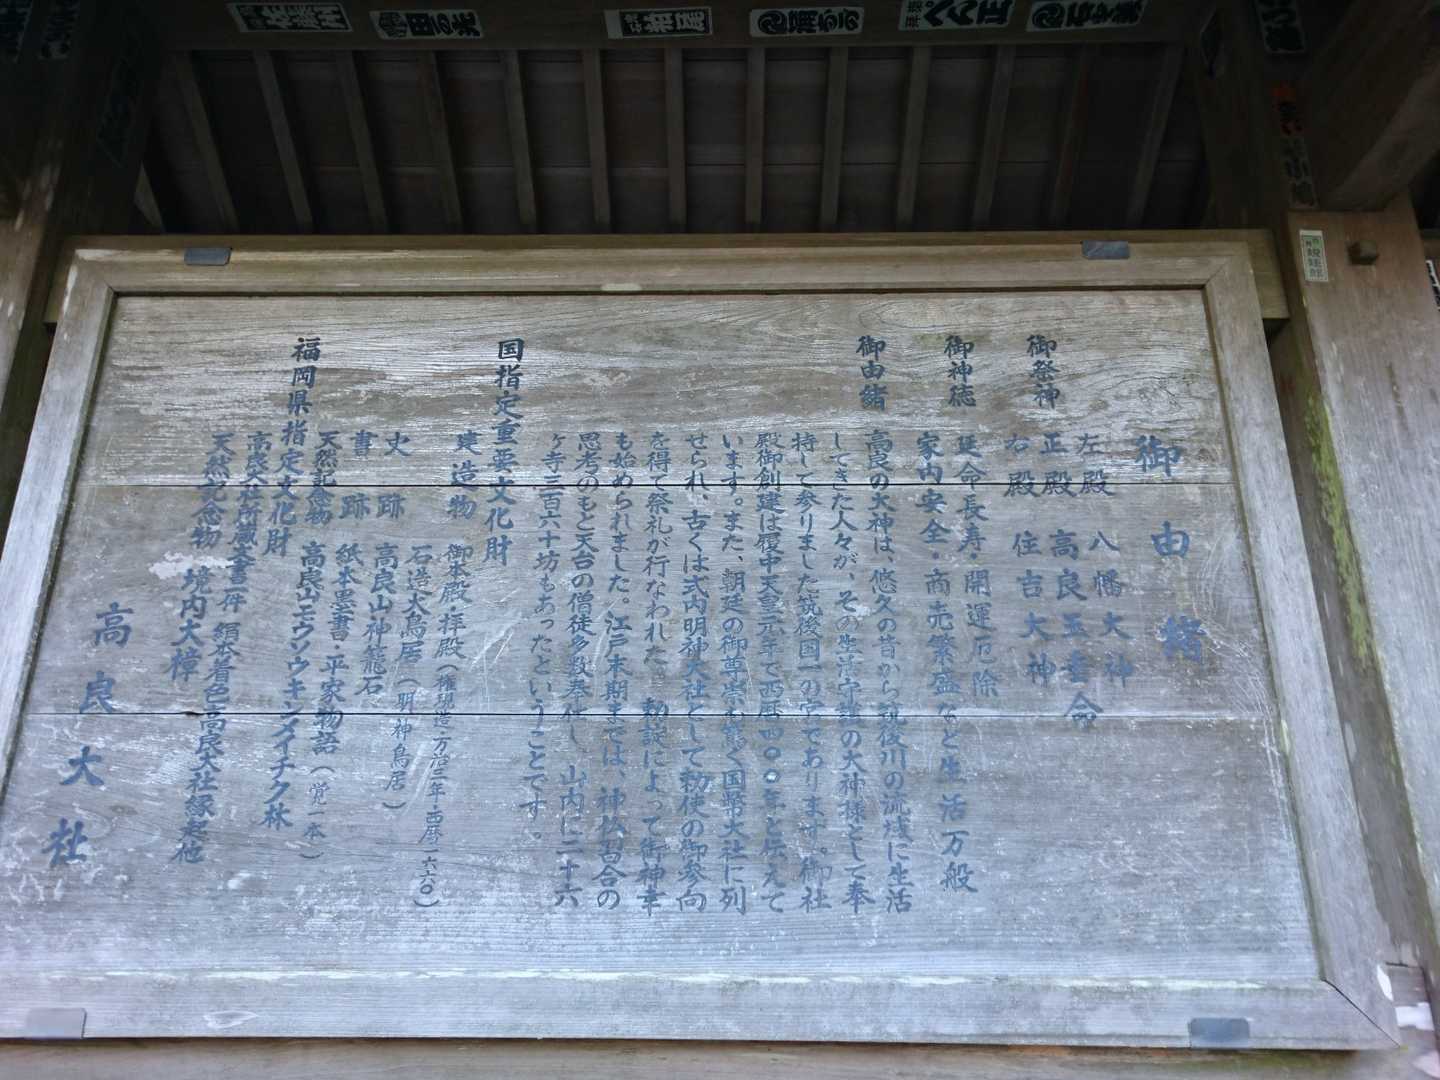 御由緒
御祭神
左殿 八幡大神
正殿 高良玉垂命
右殿 住吉大神
御神徳 延命長寿・開運厄除
家内安全・商売繁盛など生活万般
御由緒 高良の大神は、悠久の昔から筑後川の流域に生活
してきた人々が、その生活守護の大神様として奉
持して参りました筑後国一の宮であります。御社
殿御創建は履中天皇元年で西暦四〇〇年と伝えて
います。また、朝廷の御尊崇も篤く国幣大社に列
せられ、古くは式内明神大社として勅使の御参向
を得て祭礼が行なわれた。勅裁によって御神幸
も始められました。江戸末期までは、神仏習合の
思考のもと天台の僧徒多数奉仕し、山内に二十六
ヶ寺三百六十坊もあったということです。
国指定重要文化財
建造物 御本殿・拝殿(権現造・万治三年・西暦一六六〇)
石造大鳥居(明神鳥居)
史跡 高良山神籠石
書跡 紙本墨書・平家物語(覚一本)
天然記念物 高良山モウソウキンメイチク林
福岡県指定文化財
高良大社所蔵文書一件 絹本着色高良大社縁起他
天然記念物 境内大樟
高良大社